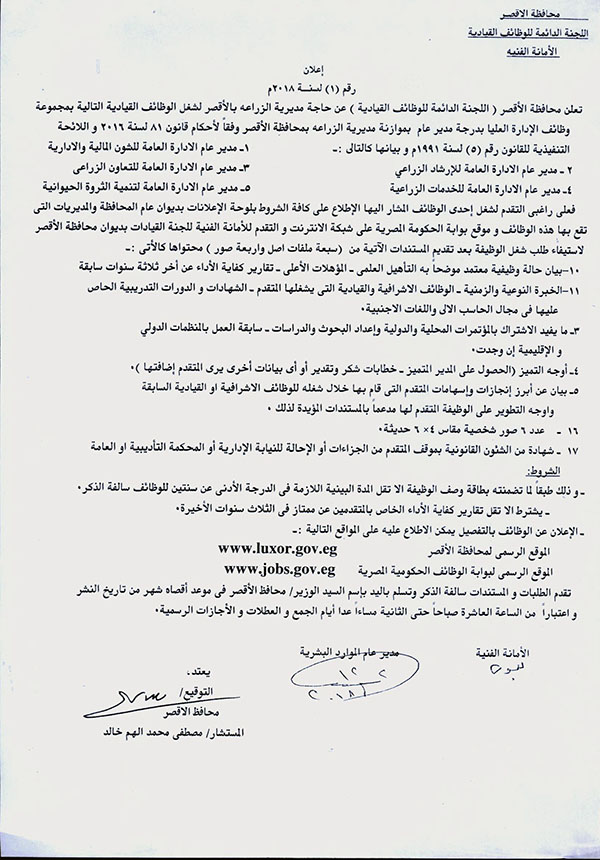 محافظة الاقصر
اللجنة الدائمة للوظائف القيادية
الأمانة الفنيه
إعلان
رقم (١) لسنة ٢٠١٨م
تعلن محافظة الأقصر ( اللجنة الدائمة للوظائف القيادية ) عن حاجة مديرية الزراعه بالأقصر لشغل الوظائف القيادية التالية بمجموعة
وظائف الإدارة العليا بدرجة مدير عام بموازنة مديرية الزراعه بمحافظة الأقصر وفقاً لأحكام قانون ٨١ لسنة ٢٠١٦ و اللائحة
التنفيذية للقانون رقم (٥) لسنة ١٩٩١م و بيانها كالتالى :ـ
١- مدير عام الادارة العامة للشون المالية والادارية
٢ ـ مدير عام الادارة العامة للإرشاد الزراعي
٣- مدير عام الادارة العامة للتعاون الزراعى
٤- مدير عام الادارة العامة للخدمات الزراعية
٥- مدير عام الادارة العامة لتنمية الثروة الحيوانية
فعلى راغبى التقدم لشغل إحدى الوظائف المشار اليها الإطلاع على كافة الشروط بلوحة الإعلانات بديوان عام المحافظة والمديريات التى
تقع بها هذه الوظائف و موقع بوابة الحكومة المصرية على شبكة الانترنت و التقدم للأمانة الفنية للجنة القيادات بديوان محافظة الأقصر
لاستيفاء طلب شغل الوظيفة بعد تقديم المستندات الآتية من (سبعة ملفات اصل واربعة صور ) محتواها كالأتى :ـ
١٠-بيان حالة وظيفية معتمد موضحاً به التأهيل العلمى ـ المؤهلات الأعلى ـ تقارير كفاية الأداء عن أخر ثلاثة سنوات سابقة
١١-الخبرة النوعية والزمنية ـ الوظائف الاشرافية والقيادية التى يشغلها المتقدم ـ الشهادات و الدورات التدريبية الحاص
عليها فى مجال الحاسب الالى واللغات الاجنبية.
٣ـ ما يفيد الاشتراك بالمؤتمرات المحلية والدولية وإعداد البحوث والدراسات ـ سابقة العمل بالمنظمات الدولي
و الإقليمية إن وجدت.
٤ـ أوجه التميز (الحصول على المدير المتميز ـ خطابات شكر وتقدير أو أى بيانات أخرى يرى المتقدم إضافتها ).
٥ـ بيان عن أبرز إنجازات وإسهامات المتقدم التى قام بها خلال شغله للوظائف الاشرافية او القيادية السابقة
واوجه التطوير على الوظيفة المتقدم لها مدعماً بالمستندات المؤيدة لذلك .
١٦ ـ عدد ٦ صور شخصية مقاس ٤×٦ حديثة.
١٧ ـ شهادة من الشئون القانونية بموقف المتقدم من الجزاءات أو الإحالة للنيابة الإدارية أو المحكمة التأديبية او العامة
الشروط:
ـ و ذلك طبقاً لما تضمنته بطاقة وصف الوظيفة الا تقل المدة البينية اللازمة فى الدرجة الأدنى عن سنتين للوظائف سالفة الذكر.
ـ يشترط الا تقل تقارير كفاية الأداء الخاص بالمتقدمين عن ممتاز فى الثلاث سنوات الأخيرة.
ـ الإعلان عن الوظائف بالتفصيل يمكن الاطلاع عليه على المواقع التالية :ـ
الموقع الرسمى لمحافظة الأقصر www.luxor.gov.eg
الموقع الرسمى لبوابة الوظائف الحكومية المصرية www.jobs.gov.eg
تقدم الطلبات و المستندات سالفة الذكر وتسلم باليد بإسم السيد الوزير/ محافظ الأقصر فى موعد أقصاه شهر من تاريخ النشر
و اعتباراً من الساعة العاشرة صباحاً حتى الثانية مساءاً عدا أيام الجمع و العطلات و الأجازات الرسمية.
الأمانة الفنية
مدير عام الموارد البشرية
يعتمد،
التوقيع/
محافظ الأقصر
المستشار/ مصطفى محمد الهم خالد